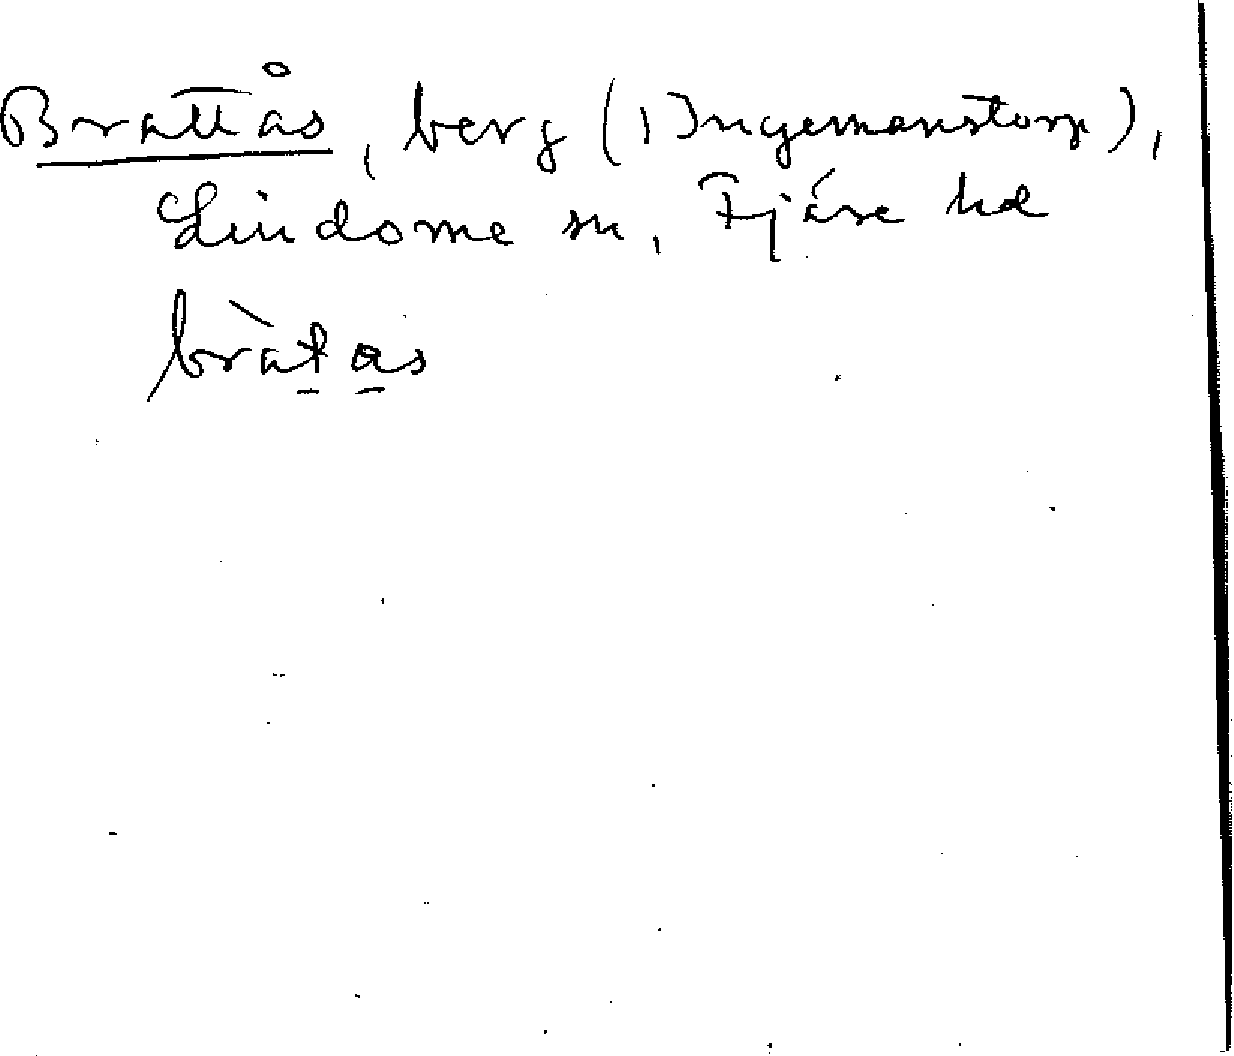 Brattås, berg (1 Ingemanstorp),
Lindome sn, Fjäre hd
bràt̲a̲s